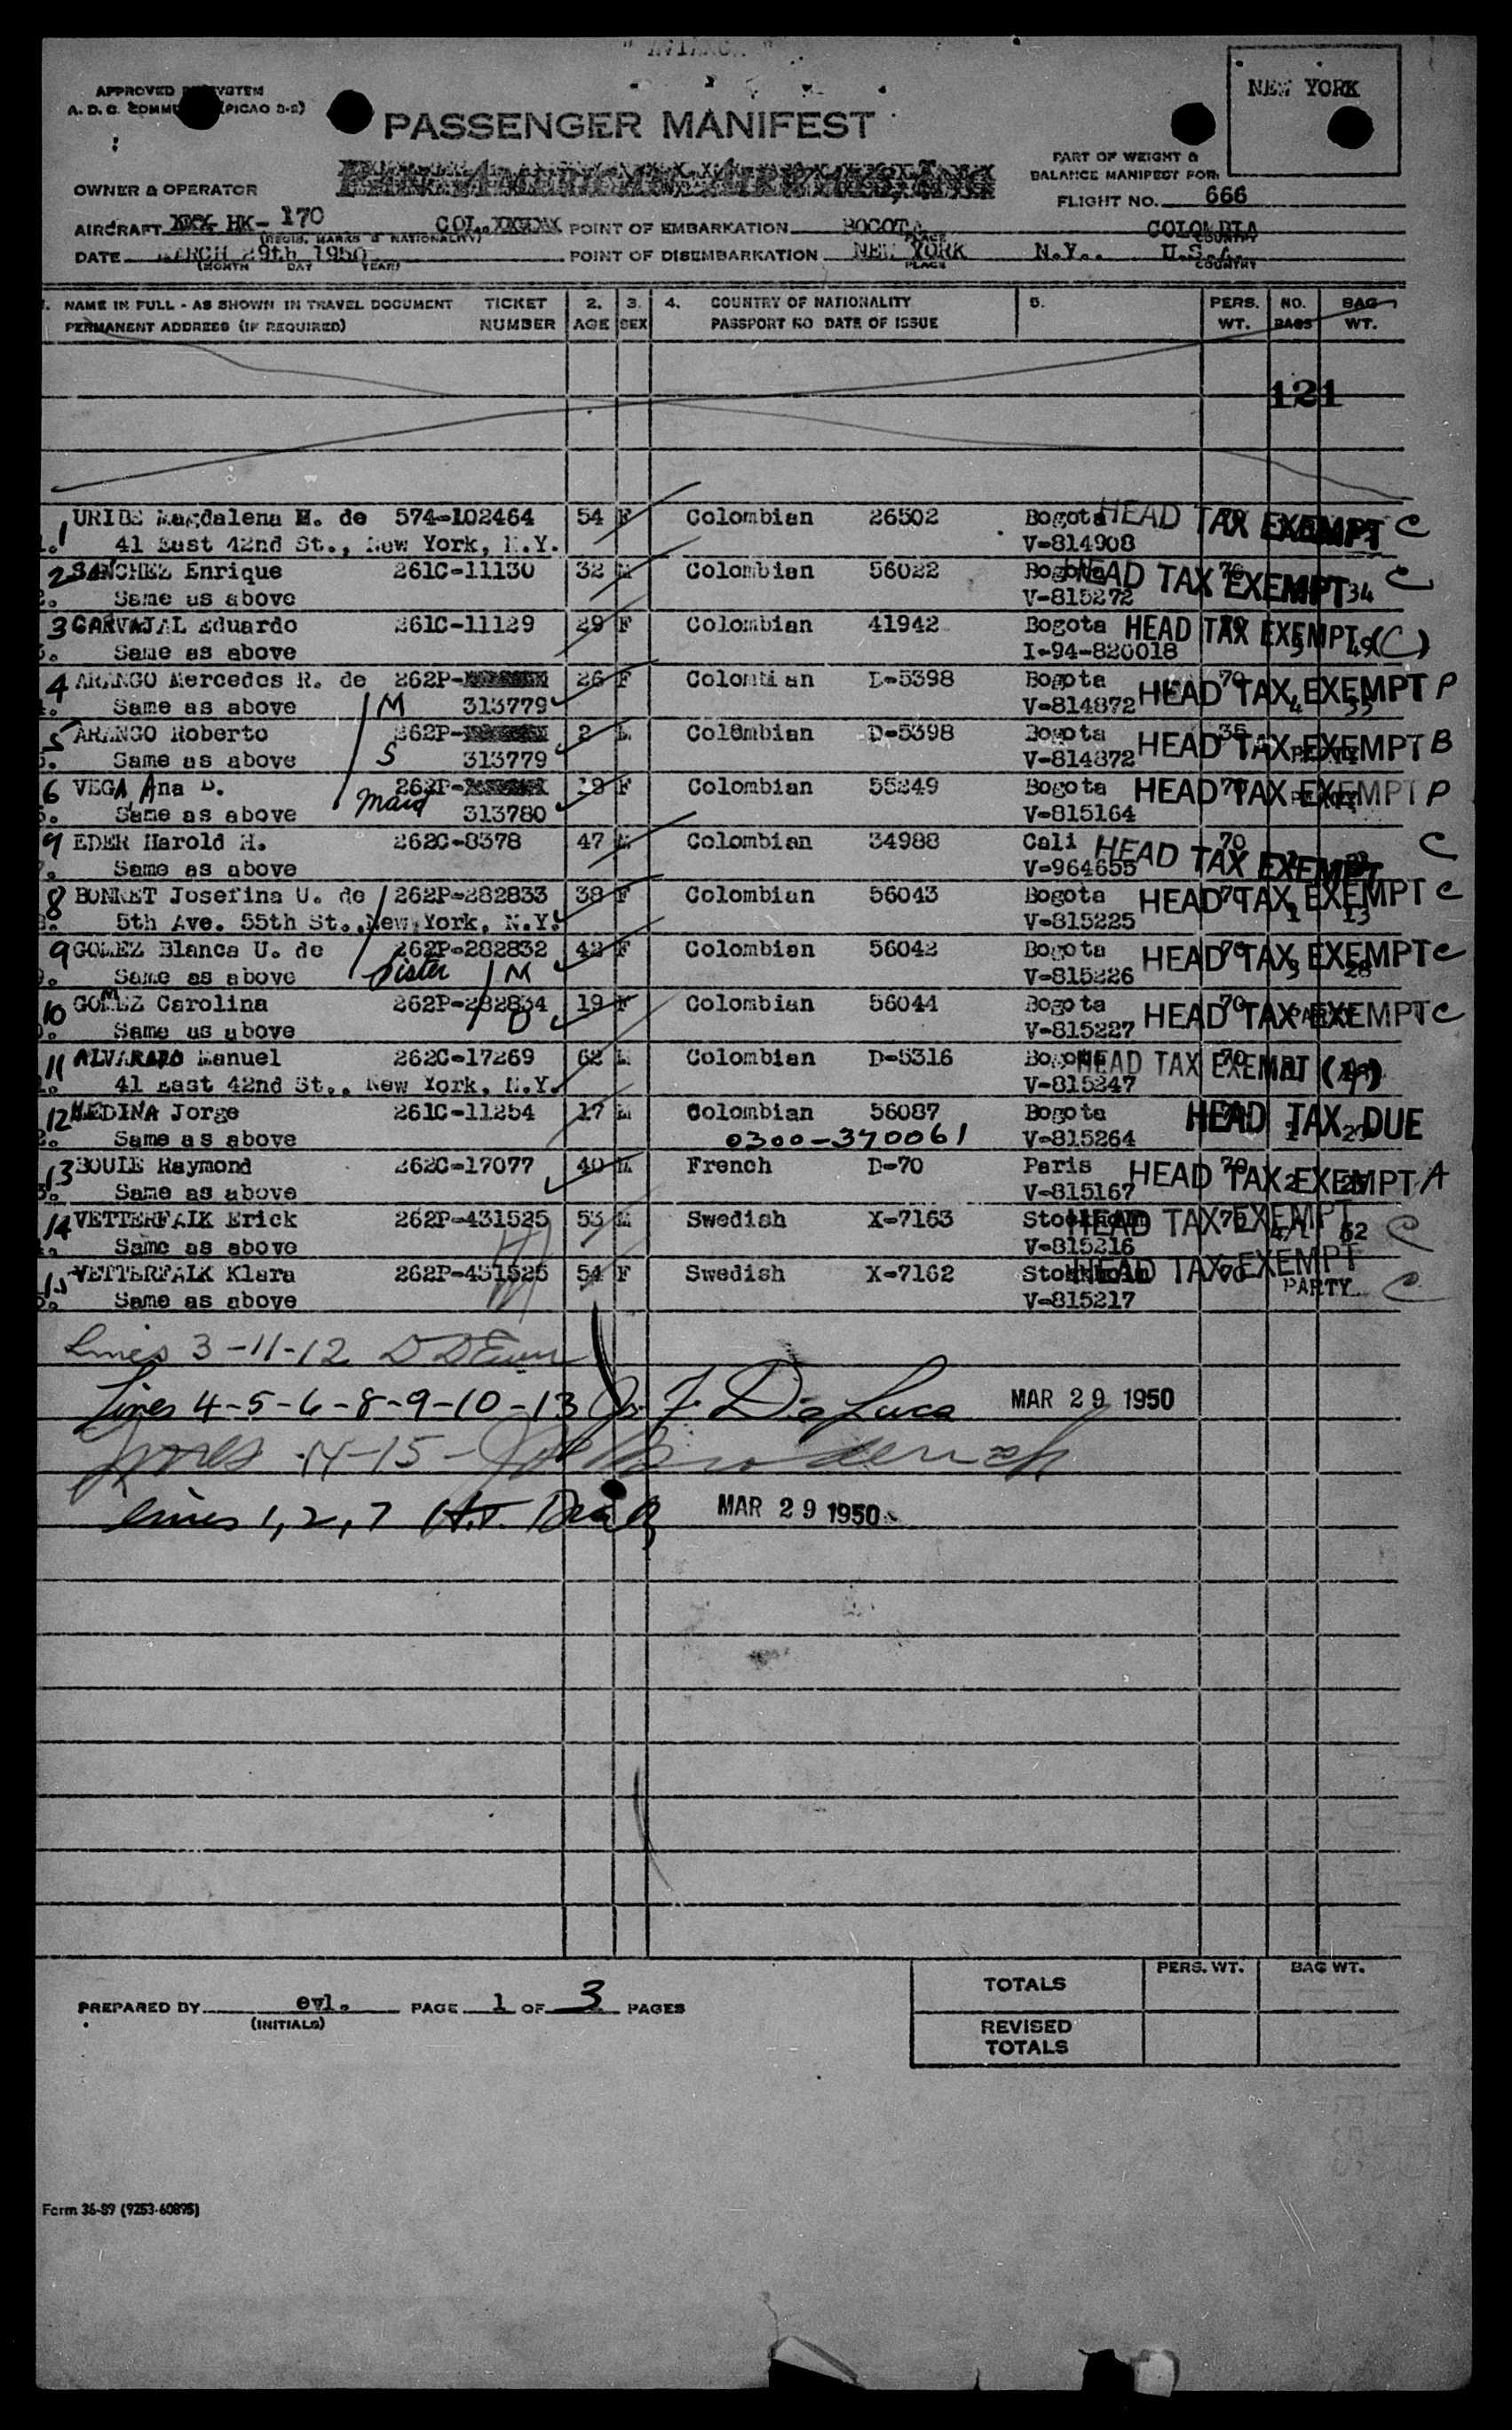 "AVIANCA"
APPROVED BY SYSTEM
A. D. C. COMMU (PICAO 3-2)
NEW YORK
PASSENGER MANIFEST
PART OF WEIGHT &
BALANCE MANIFEST FOR:
OWNER & OPERATOR
FLIGHT NO. 666
AIRCRAFT HK-170 COL. POINT OF EMBARKATION BOGOTA COLOMBIA
(REGIS. MARKS & NATIONALITY) PLACE COUNTRY
DATE MARCH 29th 1950 POINT OF DISEMBARKATION NEW YORK N.Y.. U.S.A.
(MONTH DAY YEAR) PLACE COUNTRY
1. NAME IN FULL - AS SHOWN IN TRAVEL DOCUMENT TICKET 2. 3. 4. COUNTRY OF NATIONALITY 5. PERS. NO. BAG
PERMANENT ADDRESS (IF REQUIRED) NUMBER AGE SEX PASSPORT NO DATE OF ISSUE WT. BAGS WT.
121
1 URIBE Magdalena M. de 574-102464 54 F Colombian 26502 Bogota HEAD TAX EXEMPT C
41 East 42nd St., New York, N.Y. V-814908
2 SANCHEZ Enrique 261C-11130 32 M Colombian 56022 Bogota HEAD TAX EXEMPT 34 C
Same as above V-815272
3 CARVAJAL Eduardo 261C-11129 29 F Colombian 41942 Bogota HEAD TAX EXEMPT (C)
Same as above I-94-820018
4 ARANGO Mercedes R. de 262P- 26 F Colombian D-5398 Bogota 70 HEAD TAX EXEMPT P
Same as above M 313779 V-814872
5 ARANGO Roberto 262P- 2 M Colombian D-5398 Bogota 35 HEAD TAX EXEMPT B
Same as above S 313779 V-814872
6 VEGA, Ana D. 262P- 18 F Colombian 55249 Bogota 70 HEAD TAX EXEMPT P
Same as above maid 313780 V-815164
7 EDER Harold H. 262C-8378 47 M Colombian 34988 Cali 70 HEAD TAX EXEMPT C
Same as above V-964655
8 BONNET Josefina U. de 262P-282833 38 F Colombian 56043 Bogota 70 HEAD TAX EXEMPT C
5th Ave. 55th St., New York, N.Y. V-815225 1 13
9 GOMEZ Blanca U. de 262P-282832 42 F Colombian 56042 Bogota 70 HEAD TAX EXEMPT C
Same as above sister M V-815226 3 28
10 GOMEZ Carolina 262P-282834 19 F Colombian 56044 Bogota 70 HEAD TAX EXEMPT C
Same as above D V-815227 PARTY
11 ALVARADO Manuel 262C-17269 62 M Colombian D-5316 Bogota 70 HEAD TAX EXEMPT
41 East 42nd St., New York, N.Y. V-815247
12 MEDINA Jorge 261C-11254 17 M Colombian 56087 Bogota HEAD TAX DUE
Same as above 0300-370061 V-815264
13 BOUIE Raymond 262C-17077 40 M French D-70 Paris 70 HEAD TAX EXEMPT A
Same as above V-815167
14 VETTERFALK Erick 262P-431525 53 M Swedish X-7163 Stockholm 70 HEAD TAX EXEMPT 62 C
Same as above V-815216
15 VETTERFALK Klara 262P-431526 54 F Swedish X-7162 Stockholm 70 HEAD TAX EXEMPT C
Same as above V-815217 PARTY
Lines 3-11-12
Lines 4-5-6-8-9-10-13 F. DeLuca MAR 29 1950
Lines 14-15- Broderick
lines 1, 2, 7 H.T. MAR 29 1950
PREPARED BY evl. PAGE 1 OF 3 PAGES
(INITIALS)
TOTALS PERS. WT. BAG WT.
REVISED
TOTALS
Form 36-89 (9253-60895)